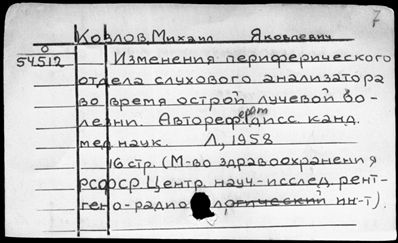 7
Козлов, Михаил Яковлевич
0
54512
Изменения периферического
отдела слухового анализатора
во время острой лучевой бо-
лезни. Автореферат дисс. канд.
мед. наук. Л., 1958
16 стр. (М-во здравоохранения
РСФСР. Центр. науч.-исслед. рент-
гено-радио логический ин-т).